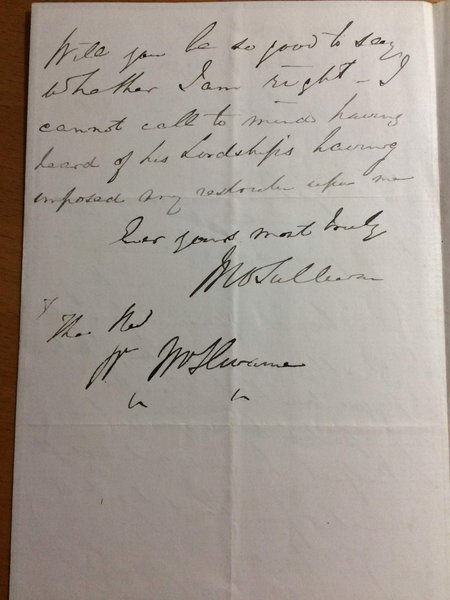 Will you be so good to say
whether I am right – I
cannot call to mind having
heard of his Lordship's having
imposed any upon me
Ever yours most truly
O'Sullivan
The Rev